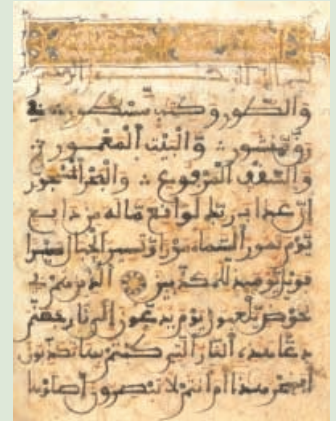 بسم الله الرحمن الرحيم
والطور وكتب مسطور في
رق منشور والبيت المعمور
والسقف المرفوع والبحر المسجور
إن عذاب ربك لواقع ما له من دافع
يوم تمور السماء مورا وتسير الجبال سيرا
فويل يومئذ للمكذبين الذين هم في
خوض يلعبون يوم يدعون إلى نار جهنم
دعا هذه النار التي كنتم بها تكذبون
أفسحر هذا أم أنتم لا تبصرون اصلوها